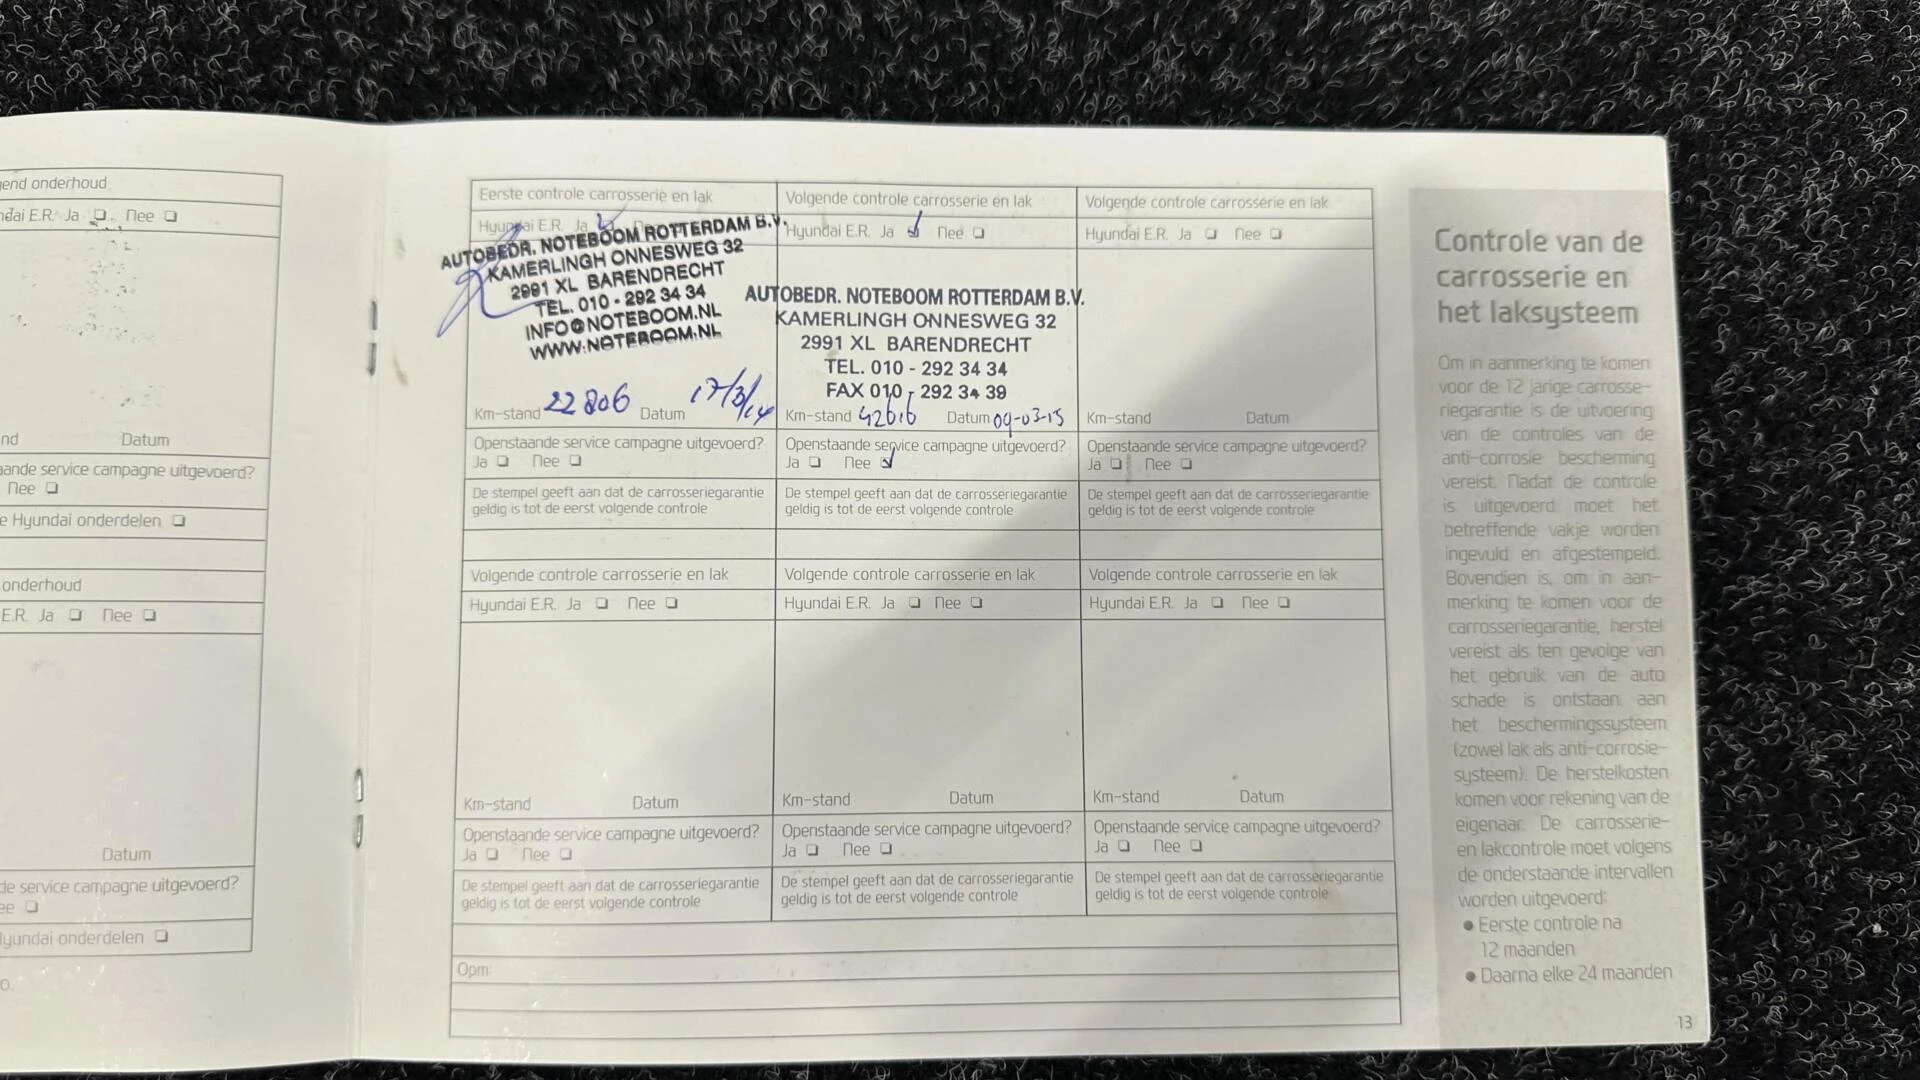 end onderhoud
ndai E.R. Ja ❏ Nee ❏
nd Datum
aande service campagne uitgevoerd?
Nee ❏
e Hyundai onderdelen ❏
onderhoud
E.R. Ja ❏ Nee ❏
Datum
de service campagne uitgevoerd?
ee ❏
Hyundai onderdelen ❏
o.
Eerste controle carrosserie en lak
Hyundai E.R. Ja
AUTOBEDR. NOTEBOOM ROTTERDAM B.V.
KAMERLINGH ONNESWEG 32
2991 XL BARENDRECHT
TEL. 010 - 292 34 34
INFO@NOTEBOOM.NL
WWW.NOTEBOOM.NL
Km-stand 22806 Datum 17/3/14
Openstaande service campagne uitgevoerd?
Ja ❏ Nee ❏
De stempel geeft aan dat de carrosseriegarantie
geldig is tot de eerst volgende controle
Volgende controle carrosserie en lak
Hyundai E.R. Ja ☑ Nee ❏
AUTOBEDR. NOTEBOOM ROTTERDAM B.V.
KAMERLINGH ONNESWEG 32
2991 XL BARENDRECHT
TEL. 010 - 292 34 34
FAX 010 - 292 34 39
Km-stand 42616 Datum 09-03-15
Openstaande service campagne uitgevoerd?
Ja ❏ Nee ☑
De stempel geeft aan dat de carrosseriegarantie
geldig is tot de eerst volgende controle
Volgende controle carrosserie en lak
Hyundai E.R. Ja ❏ Nee ❏
Km-stand Datum
Openstaande service campagne uitgevoerd?
Ja ❏ Nee ❏
De stempel geeft aan dat de carrosseriegarantie
geldig is tot de eerst volgende controle
Volgende controle carrosserie en lak
Hyundai E.R. Ja ❏ Nee ❏
Km-stand Datum
Openstaande service campagne uitgevoerd?
Ja ❏ Nee ❏
De stempel geeft aan dat de carrosseriegarantie
geldig is tot de eerst volgende controle
Volgende controle carrosserie en lak
Hyundai E.R. Ja ❏ Nee ❏
Km-stand Datum
Openstaande service campagne uitgevoerd?
Ja ❏ Nee ❏
De stempel geeft aan dat de carrosseriegarantie
geldig is tot de eerst volgende controle
Volgende controle carrosserie en lak
Hyundai E.R. Ja ❏ Nee ❏
Km-stand Datum
Openstaande service campagne uitgevoerd?
Ja ❏ Nee ❏
De stempel geeft aan dat de carrosseriegarantie
geldig is tot de eerst volgende controle
Opm:
Controle van de
carrosserie en
het laksysteem
Om in aanmerking te komen
voor de 12 jarige carrosse-
riegarantie is de uitvoering
van de controles van de
anti-corrosie bescherming
vereist. Nadat de controle
is uitgevoerd moet het
betreffende vakje worden
ingevuld en afgestempeld.
Bovendien is, om in aan-
merking te komen voor de
carrosseriegarantie, herstel
vereist als ten gevolge van
het gebruik van de auto
schade is ontstaan aan
het beschermingssysteem
(zowel lak als anti-corrosie-
systeem). De herstelkosten
komen voor rekening van de
eigenaar. De carrosserie-
en lakcontrole moet volgens
de onderstaande intervallen
worden uitgevoerd:
● Eerste controle na
12 maanden
● Daarna elke 24 maanden
13